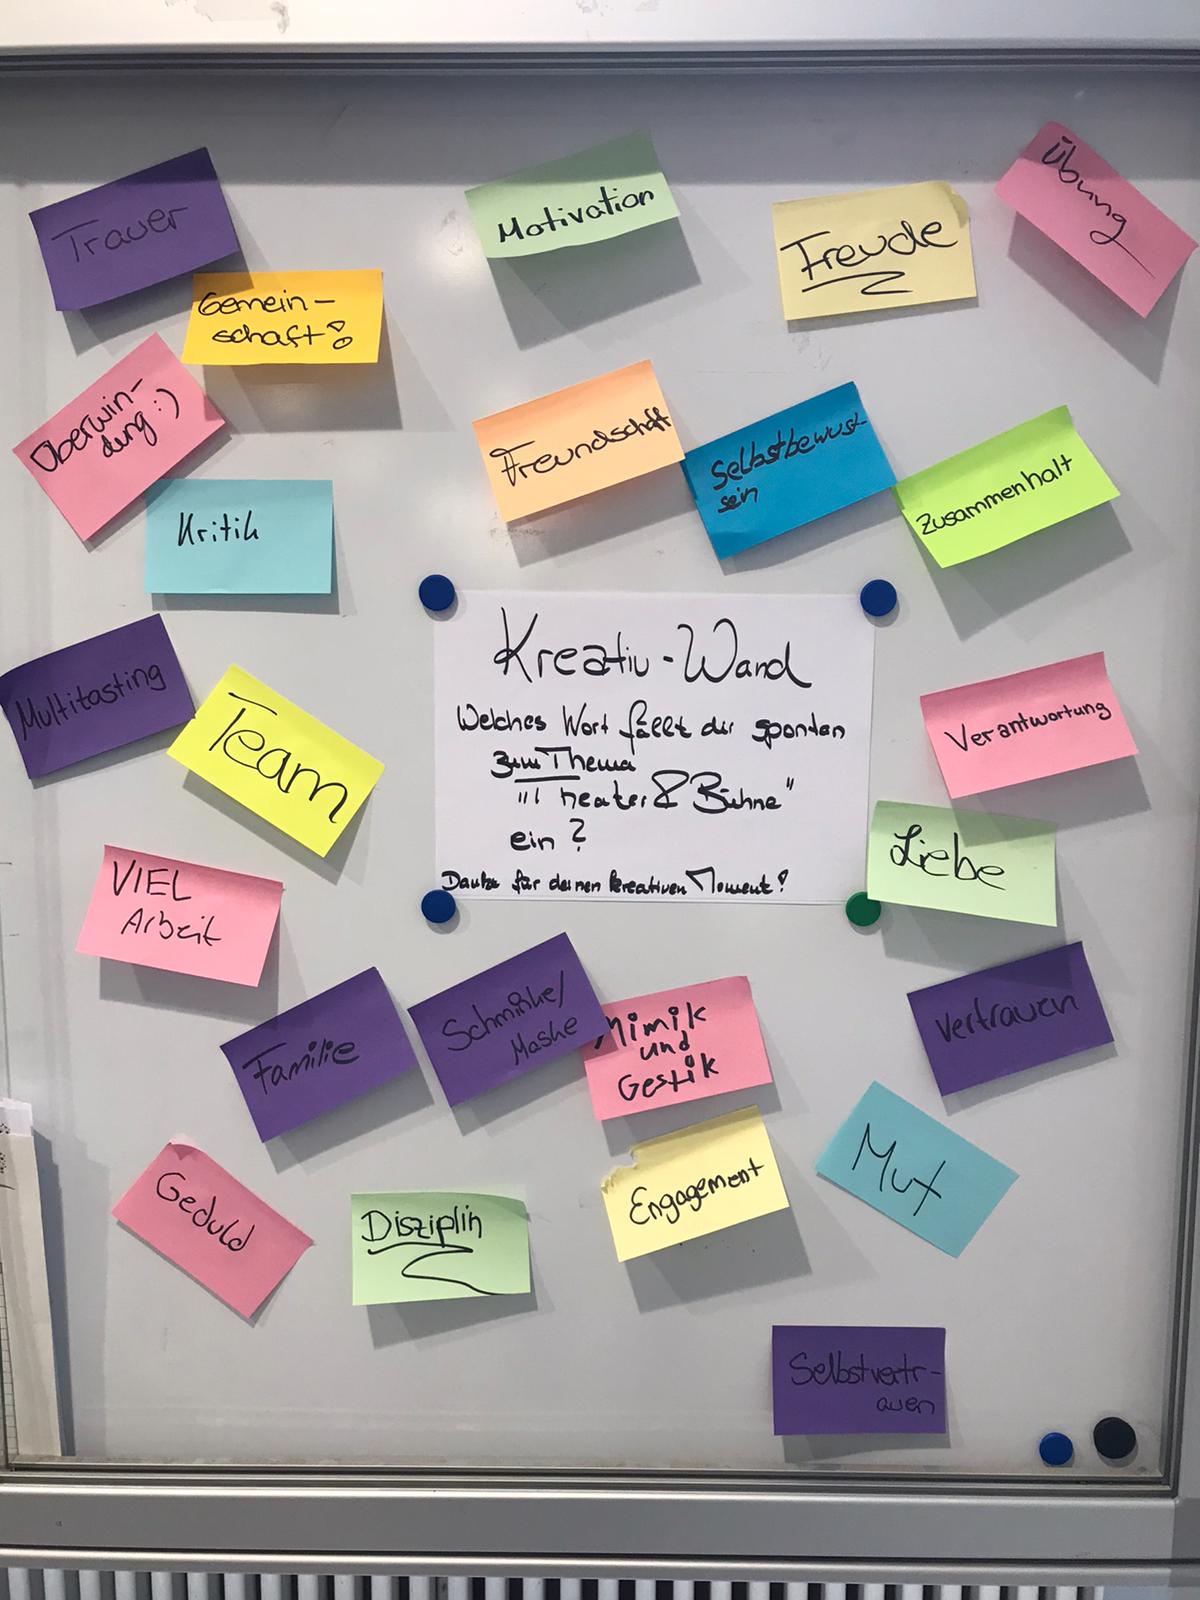 Trauer
Motivation
Freude
Übung
Gemein-
schaft!
Überwin-
dung :)
Freundschaft
Selbstbewust-
sein
Zusammenhalt
Kritik
Kreativ-Wand
Welches Wort fällt dir spontan
zum Thema
"Theater & Bühne"
ein?
Danke für deinen kreativen Moment!
Multitasting
Team
Verantwortung
Liebe
VIEL
Arbeit
Familie
Schminke/
Maske
Mimik
und
Gestik
Vertrauen
Geduld
Disziplin
Engagement
Mut
Selbstvertr-
auen